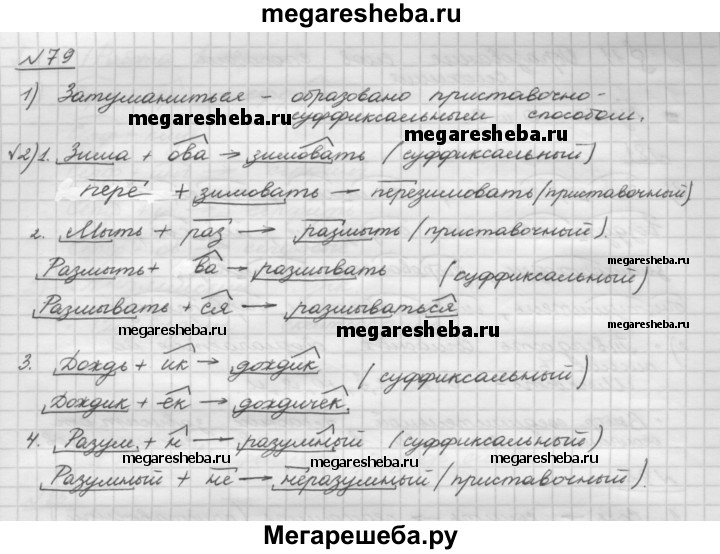 megaresheba.ru
№79
1) Затуманиться - образовано приставочно-
суффиксальным способом.
megaresheba.ru megaresheba.ru
√2) 1. Зима + ова → зимовать (суффиксальный)
пере + зимовать → перезимовать (приставочный)
2. Мыть + раз → размыть (приставочный).
megaresheba.ru
Размыть + ва → размывать (суффиксальный)
Размывать + ся → размываться
megaresheba.ru megaresheba.ru megaresheba.ru
3. Дождь + ик → дождик (суффиксальный)
Дождик + ек → дождичек.
4. Разум + н → разумный (суффиксальный)
megaresheba.ru megaresheba.ru megaresheba.ru
Разумный + не → неразумный (приставочный).
Мегарешеба.ру